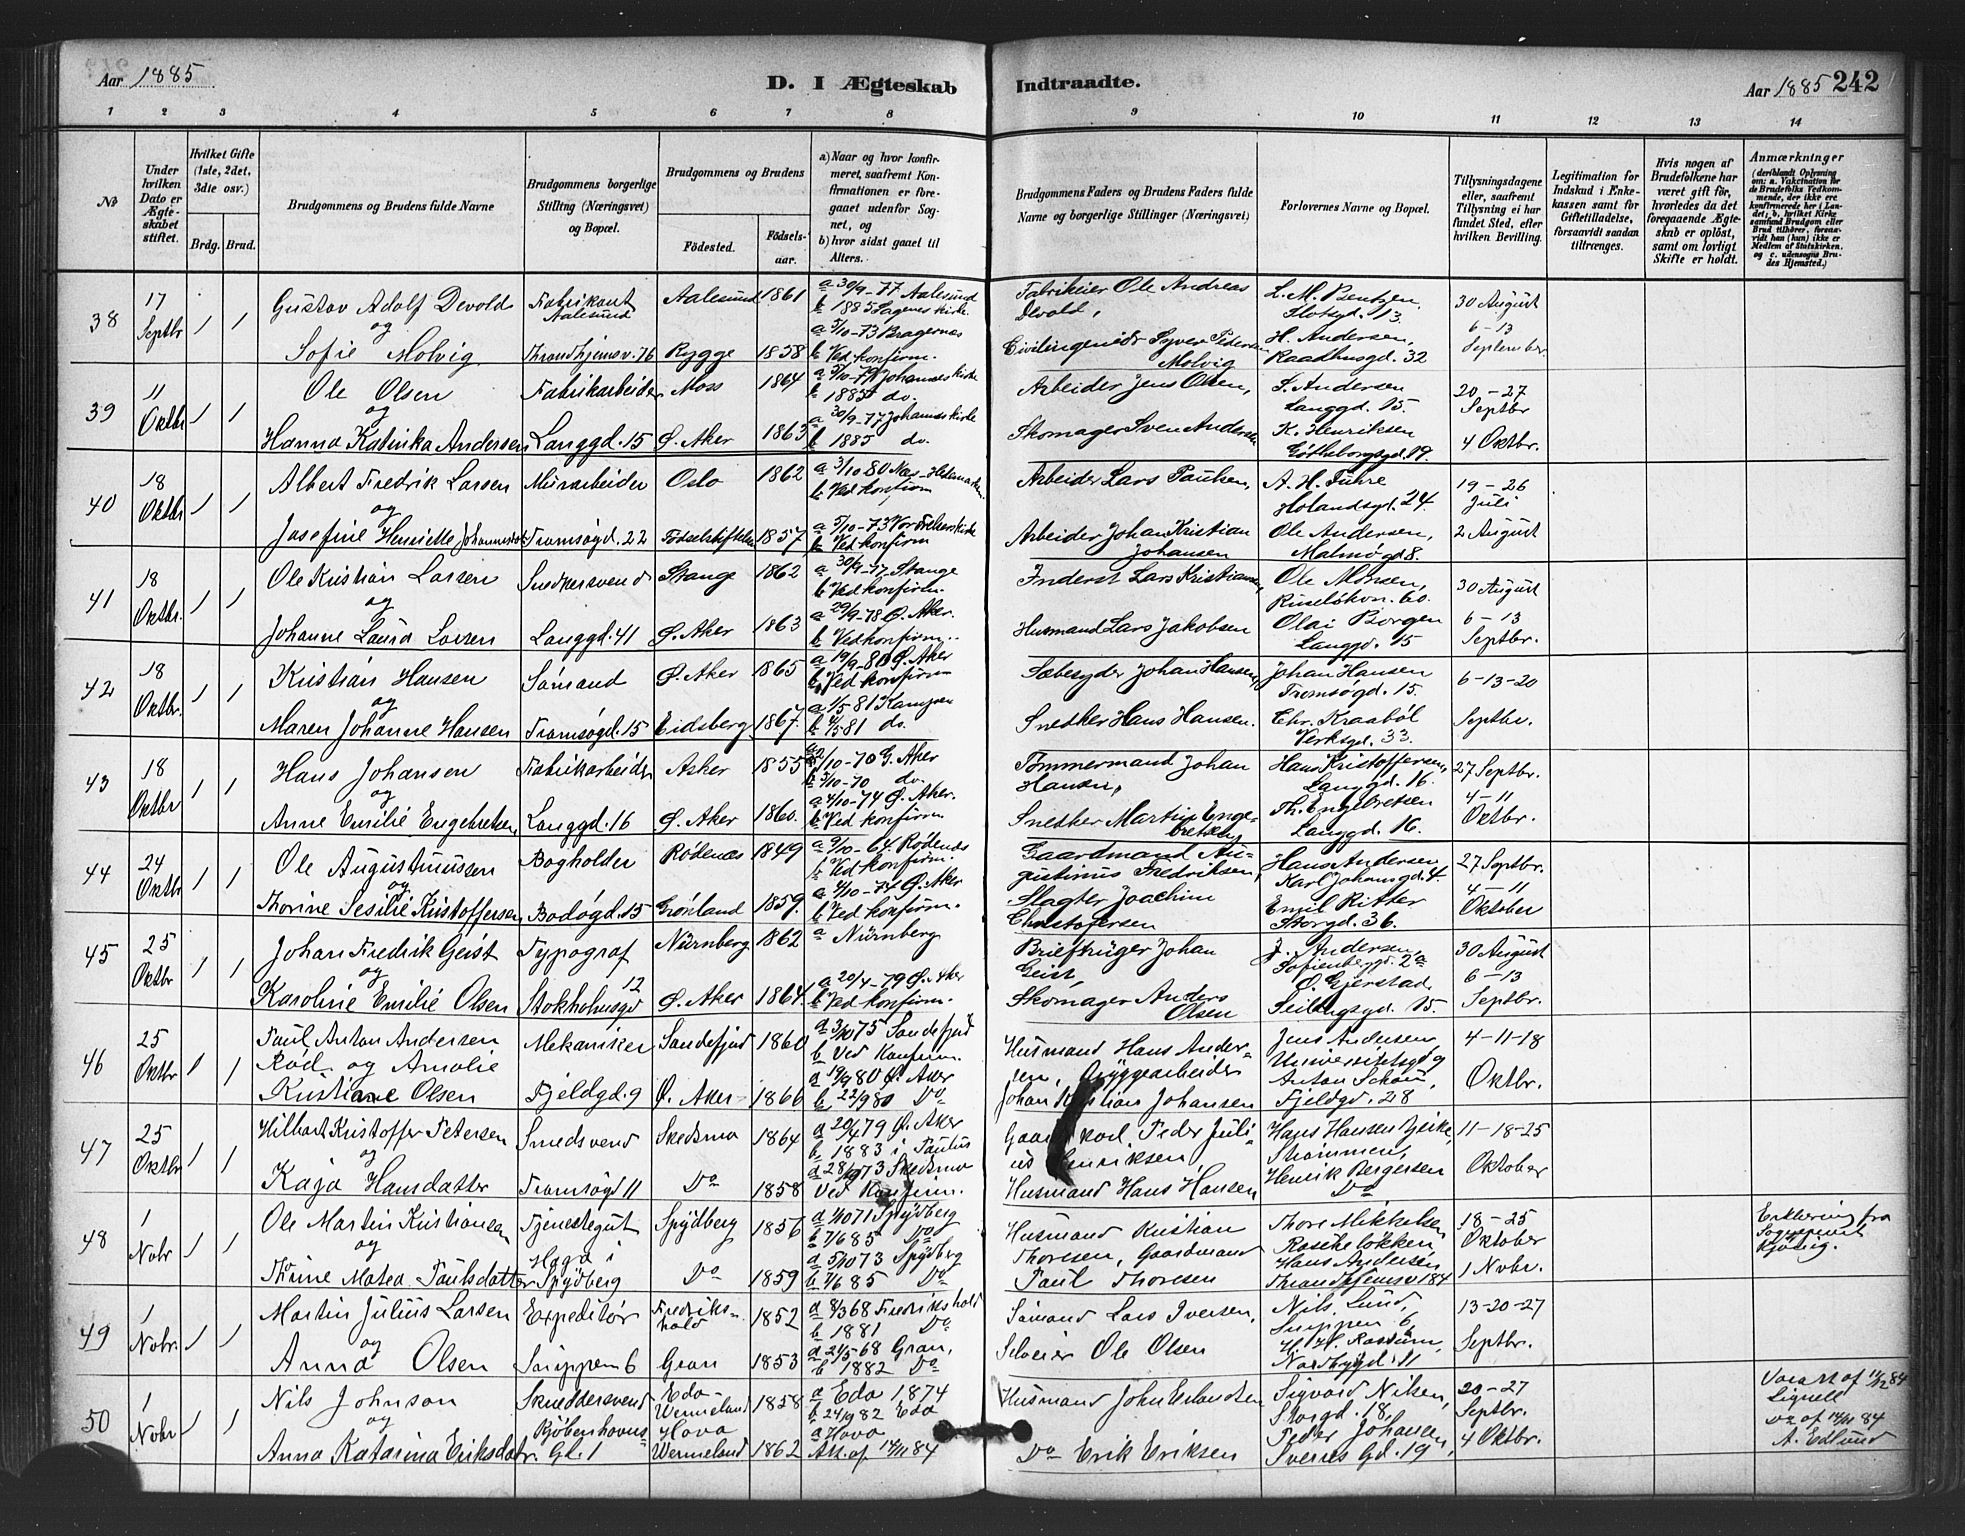 Aar 1885
D. I Ægteskab Indtraadte.
Aar 1885 242
1 2 3 4 5 6 7 8 9 10 11 12 13 14
No
Under hvilken Dato er Ægteskabet stiftet.
Hvilket Gifte (1ste, 2det, 3die osv.)
Brdg. Brud.
Brudgommens og Brudens fulde Navne
Brudgommens borgerlige Stilling (Næringsvei) og Bopæl.
Brudgommens og Brudens
Fødested. Fødselsaar.
a) Naar og hvor konfirmeret, saafremt Konfirmationen er foregaaet udenfor Sognet, og
b) hvor sidst gaaet til Alters.
Brudgommens Faders og Brudens Faders fulde Navne og borgerlige Stillinger (Næringsvei)
Forlovernes Navne og Bopæl.
Tillysningsdagene eller, saafremt Tillysning ei har fundet Sted, efter hvilken Bevilling.
Legitimation for Indskud i Enkekassen samt for Giftetilladelse, forsaavidt saadan tiltrænges.
Hvis nogen af Brudefolkene har været gift før, hvorledes da det foregaaende Ægteskab er opløst, samt om lovligt Skifte er holdt.
Anmærkninger
38 17 Septbr 1 1 Gustav Adolf Devold Fabrikant Aalesund Aalesund 1861 a 30/9-77 Aalesund b 1885 Sagenes kirke Fabrikeier Ole Andreas Devold, L. M. Bentzen, Slotsgd. 13. 30 August
og
Sofie Molvig Throndhjemsv. 76 Rygge 1858 a 5/10-73 Bragernes b Ved konfirm. Civilingeniør Syver Pedersen Molvig H. Andersen, Raadhusgd. 32 6-13 September
39 11 Oktbr 1 1 Ole Olsen Fabrikarbeider Moss 1864 Johannes kirke b 1885 do. Arbeider Jens Olsen, S. Andersen Langgd. 15. 20-27 Septbr
og
Hanna Katinka Andersen Langgd. 15 Ø. Aker 1863 a 30/9-77 Johannes kirke b 1885 do. Skomager Sven Andersen K. Henriksen Gøtheborgsgd. 19. 4 Oktbr.
40 18 Oktbr 1 1 Albert Fredrik Larsen Murarbeider Oslo 1862 a 3/10 80 Næs-Hedemarken b Ved konfirm Arbeider Lars Paulsen, A. H. Führe Holandsgd. 24. 19-26 Juli
og
Josefine Henriette Tromsøgd. 22 Fødselstiftelsen 1857 a 5/10-73 Vor Frelsers kirke b Ved konfirm Arbeider Johan Kristian Johansen Ole Andersen, Malmøgd 8. 2 August
41 18 Oktbr. 1 1 Ole Kristian Larsen Snedkersvend Stange 1862 Stange b Ved konfirm. Inderst Lars Kristiansen, Ole Monsen, Ruseløkv. 60. 30 August
og
Johanne Laura Larsen Langgd. 41 Ø. Aker 1863 a 29/9-78 Ø. Aker. b Ved konfirm. Husmand Lars Jakobsen Olai Borgen Langgd. 15 6-13 Septbr.
42 18 Oktbr. 1 1 Kristian Hansen Sømand Ø. Aker 1865 a 19/9-80 Ø. Aker b Ved konfirm Sæbesyder Johan Hansen, Johan Hansen Tromsøgd. 15. 6-13-20
og
Maren Johanne Hansen Tromsøgd. 15 Eidsberg 1867. a 1/5 81 Kampen b 4/5 81 do. Snekker Hans Hansen. Chr. Kraabøl Verksgd. 33. Septbr.
43 18 Oktbr 1 1 Hans Johansen Fabrikarbeider Asker 1855 a 2/10-70 Ø. Aker b 3/10-70 do. Tømmermand Johan Hansen, Hans Kristoffersen, Langgd. 16. 27 Septbr.
og
Anne Emilie Engebretsen Langgd. 16 Ø. Aker 1860. a 4/10-74 Ø. Aker. b Ved konfirm Snekker Martin Engebretsen Th. Engebretsen Langgd. 16. 4-11 Oktbr.
44 24 Oktbr 1 1 Ole Augustinussen Bogholder Rødenæs 1849 a 9/10-64. Rødenæs b Ved konfirm. Gaardmand Augustinus Fredriksen, Hans Andersen Karl Johansgd. 4. 27 Septbr.
og
Thorine Sesilie Kristoffersen Bodøgd. 15 Grønland 1859. a 4/10-74 Ø. Aker b Ved konfirm. Slagter Joachim Christofersen Emil Ritter Storgd. 36. 4-11 Oktober
45 25 Oktbr 1 1 Johan Fredrik Geist Typograf Nürnberg 1862 a Nürnberg Briefträger Johan Geist, J. Andersen, Sofienberggd. 2a 30 August
og
Karoline Emilie Olsen Stokholmsgd 12 Ø. Aker 1864. a 20/4-79 Ø. Aker b Ved konfirm. Skomager Anders Olsen O. Gjerstad, Seildugsgd. 15. 6-13 Septbr.
46 25 Oktbr 1 1 Paul Anton Andersen Rød og Amalie Mekaniker Sandefjord 1860 a 3/10 75 Sandefjord b Ved Konfirm. Husmand Hans Andersen, Bryggearbeider Jens Andersen, Universitetsgd 9 4-11-18
Kristiane Olsen Fjeldgd. 9 Ø. Aker 1866 a 19/9 80 Ø. Aker b 22/9 80 Do Johan Kristian Johansen Anton Schou, Fjeldgd. 28 Oktbr.
47 25 Oktbr 1 1 Hilbart Kristoffer Petersen Smedsvend Skedsmo 1864 a 20/4 79 Ø. Aker b 1883 i Paulus Peder Julius Henriksen, Hans Hansen Strømmen, 11-18-25
og
Kaja Hansdatter Tromsøgd 11 Do 1858 a 28/9 73 Skedsmo Ved Konfirm. Husmand Hans Hansen Henrik Bergersen Do Oktober
48 1 Nobr 1 1 Ole Martin Kristiansen Tjenestegut Spydberg 1856 Spydberg b 7/6 85 Do Husmand Kristian Thoresen, Gaardmand Thore Mikkelsen Rosenløkken 18-25 Oktober Erklæring fra
og
Thrine Matea Paulsdatter Haga i Spydberg Do 1859 a 5/10 73 Spydberg b 7/6 85 Do Paul Thoresen Hans Andersen Thrandhjemsv 184 1 Nobr.
49 1 Nobr. 1 1 Martin Julius Larsen Expeditør Fredrikshald 1852 a 8/3 68 Fredrikshald b 1881 Do Sømand Lars Iversen, Nils Lund, Snippen 6, 13-20-27
og
Anna Olsen Snippen 6 Gran 1853 a 24/5-68 Gran, b 1882 Do Selveier Ole Olsen Nordbygd. 11 Septbr.
50 1 Nobr 1 1 Nils Johnson Skræddersvend Eda Wermeland 1858 a Eda 1874 b 24/9 82 Eda Husmand John Erlandsen Sigvard Nilsen, Storgd. 18, 20-27 Septbr. af 11/12 84 Lignell
og
Anna Katarina Eriksdatr. Kjøbenhavns Gd. 1 Hova Wermeland 1862 a Hova Att. af 14/11 84 Do Erik Eriksen Peder Johansen, Sverres Gd. 19, 4 Oktbr. Do af 14/11 84 A. Edlund